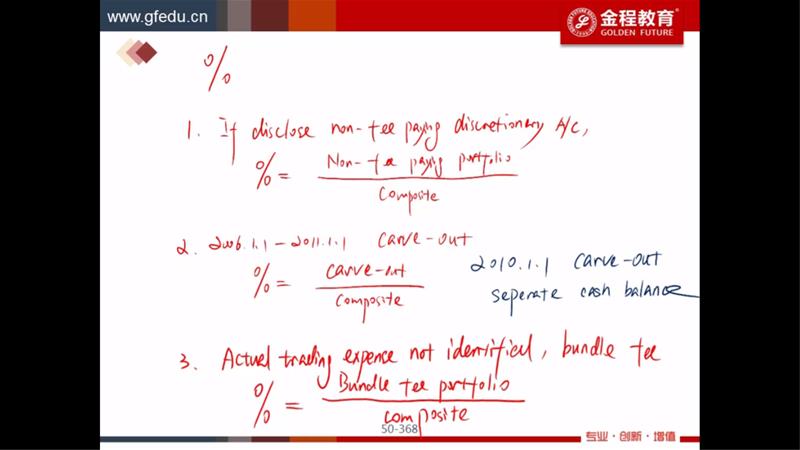 www.gfedu.cn
金程教育
GOLDEN FUTURE
%
1. If disclose non-fee paying discretionary A/C,
% = Non-fee paying portfolio
composite
2. 2006.1.1 - 2011.1.1 carve-out
% = carve-out
composite
2010.1.1 carve-out
seperate cash balance
3. Actual trading expence not identified, bundle fee
% = Bundle fee portfolio
composite
50-368
专业·创新·增值